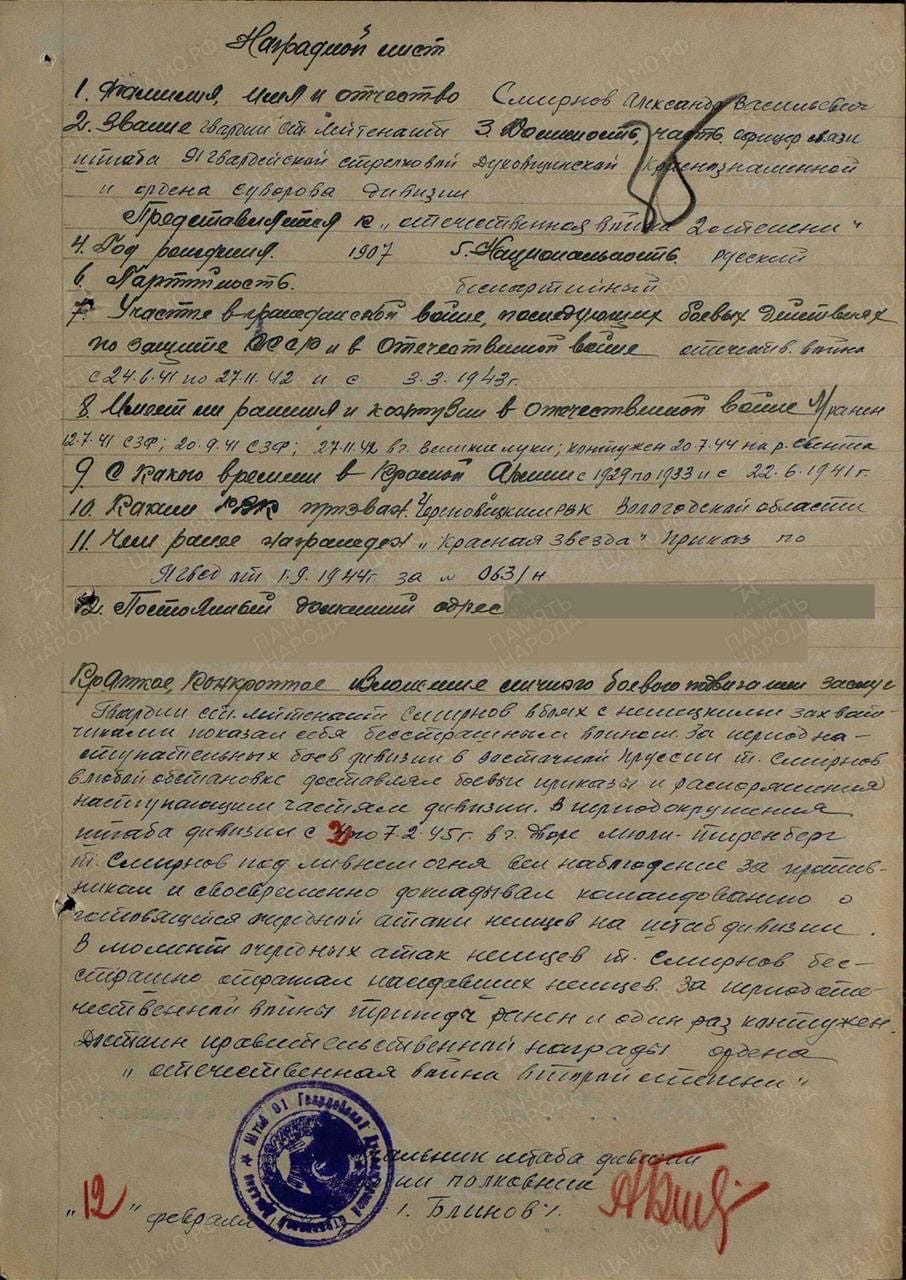 Наградной лист
1. Фамилия, имя и отчество Смирнов Александр Васильевич
2. Звание гвардии ст. лейтенант 3. Должность, часть офицер связи
штаба 91 гвардейской стрелковой Духовщинской Краснознаменной
и ордена Суворова дивизии
Представляется к „отечественная война 2 степени"
4. Год рождения. 1907 5. Национальность. русский
6. Партийность. беспартийный
7. Участие в гражданской войне, последующих боевых действиях
по защите СССР и в отечественной войне отечеств. война
с 24.6.41 по 27.11.42 и с 3.3.1943г.
8. Имеет ли ранения и контузии в отечественной войне ранен
12.7.41 СЗФ; 20.9.41 СЗФ; 27.11.42 в г. Великие луки; контужен 20.7.44 на р. Свента
9. С какого времени в Красной Армии с 1929 по 1933 и с 22.6.1941г.
10. Каким РВК призван. Череповецким РВК Вологодской области
11. Чем ранее награжден „Красная Звезда" приказ по
91 гвсд от 1.9.1944г. за № 063/н
12. Постоянный домашний адрес
Краткое, конкретное изложение личного боевого подвига или заслуг
Гвардии ст. лейтенант Смирнов в боях с немецкими захват-
чиками показал себя бесстрашным воином. За период на-
ступательных боев дивизии в восточной Пруссии т. Смирнов
в любой обстановке доставлял боевые приказы и распоряжения
наступающим частям дивизии. В период окружения
штаба дивизии с 3 по 7.2.45г. в г. Дворе
т. Смирнов под ливнем огня вел наблюдение за против-
ником и своевременно докладывал командованию о
готовящейся очередной атаки немцев на штаб дивизии.
В момент очередных атак немцев т. Смирнов бес-
страшно отражал наседавших немцев. За период оте-
чественной войны трижды ранен и один раз контужен.
Достоин правительственной награды ордена
„отечественная война второй степени"
альник штаба дивизии
ии полковник
/. Блинов /.
„12" февраля